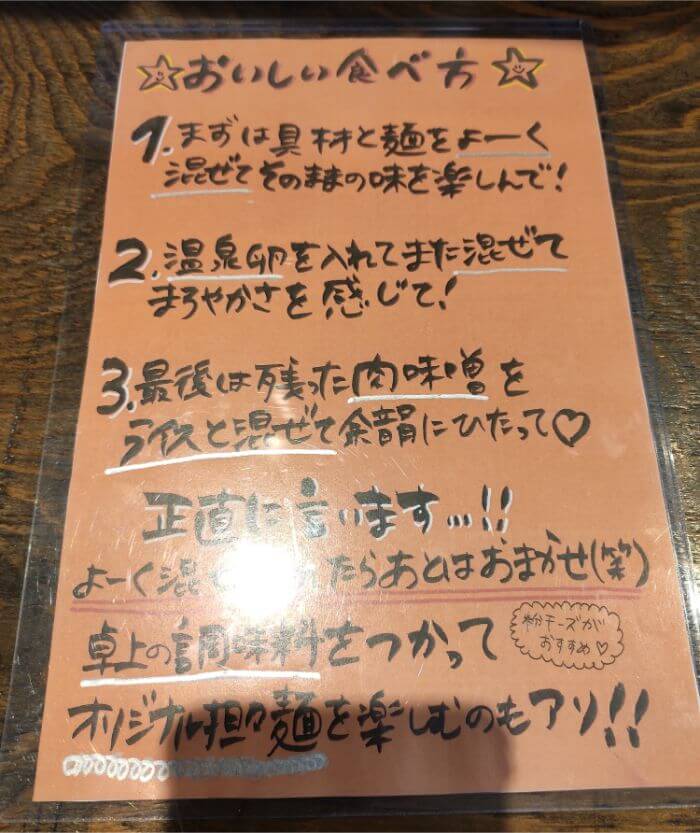 おいしい食べ方
1.まずは具材と麺をよーく
混ぜてそのままの味を楽しんで!
2.温泉卵を入れてまた混ぜて
まろやかさを感じて!
3.最後は残った肉味噌を
ライスと混ぜて余韻にひたって♡
正直に言います...!!
よーく混ぜ たらあとはおまかせ(笑)
卓上の調味料をつかって
粉チーズが
おすすめ♡
オリジナル担々麺を楽しむのもアリ!!